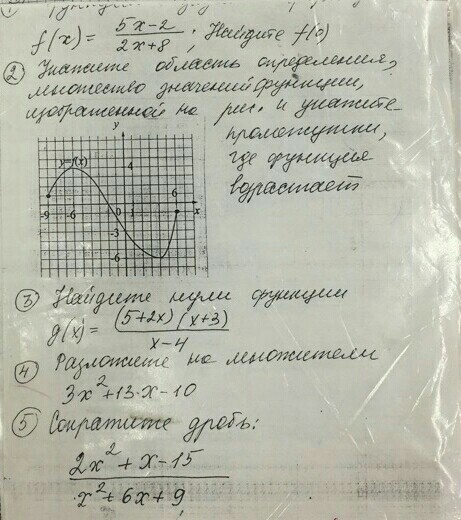 f(x) = (5x-2)/(2x+8); Найдите f(0)
② Укажите область определения,
множество значений функции,
изображенной на рис. и укажите
промежутки,
где функция
возрастает
y
y=f(x)
4
6
-9 -6 0 1 x
-3
-6
③ Найдите нули функции
g(x) = ((5+2x)(x+3))/(x-4)
④ Разложите на множители
3x²+13·x-10
⑤ Сократите дробь:
(2x²+x-15)/(x²+6x+9)